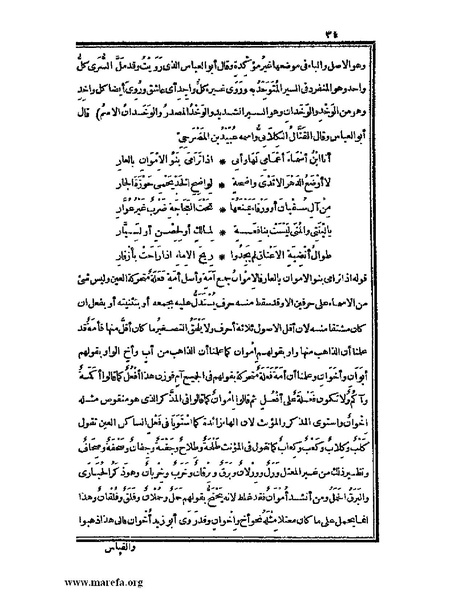 ٣٤
وهو الاصل والباء فى موضعها غير مؤكدة وقال أبو العباس الذى رويت وقد ملّ السُّرى كلُّ
واحد وهو المنفرد فى السير المتوحد به وروى غيره كلّ واجد أى عاشق وروى أيضا كل واخد
وهو من الوخد والوخدان وهو السير الشديد والوخد المصدر والوخدان الاسم) قال
أبو العباس وقال القتّال الكلابى واسمه عبيد بن المضرحى
أنا ابن أسماء أعمامى لها وأبى * اذا ترامى بنو الاموان بالعار
لا أرضع الدهر الا ثدى واضحة * لواضح الخد يحمى حوزة الجار
من آل سفيان أو ورقاء يمنعها * تحت العجاجة ضرب غير عوّار
يا ليتنى والمنى ليست بنافعة * لمالك أو لحصن أو لسيّار
طوال أنضية الاعناق لم يجدوا * ريح الاماء اذا راحت بأزفار
قوله اذا ترامى بنو الاموان بالعار فالاموان جمع أمة وأصل أمة فعلة متحركة العين وليس شئ
من الاسماء على حرفين الا وقد سقط منه حرف يستدل عليه بجمعه أو بتثنيته أو بفعل ان
كان مشتقا منه لان أقل الاصول ثلاثة أحرف ولا يلحق التصغير ما كان أقل منها فأمة قد
علمنا أن الذاهب منها واو بقولهم اموان كما علمنا أن الذاهب من أب وأخ الواو بقولهم
أبوان وأخوان وعلمنا أن أمة فعلة متحركة بقولهم فى الجميع آم فوزن هذا أفعل كما قالوا أكمة
وآكم ولا تكون فعلة على أفعل ثم قالوا اموان كما قالوا فى المذكر الذى هو منقوص مثله
اخوان واستوى المذكر والمؤنث لان الهاء زائدة كما استويا فى فعل الساكن العين تقول
كلب وكلاب وكعب وكعاب كما تقول فى المؤنث طلحة وطلاح وجفنة وجفان وصحفة وصحاف
ونظير ذلك من غير المعتل ورل وورلان وبرق وبرقان وخرب وخربان وهو ذكر الحبارى
والبرق الحمل ومن أنشد أموان فقد غلط لانه يحتج بقولهم حمل وحملان وفلق وفلقان وهذا
انما يحمل على ما كان معتلا مثله نحو أخ واخوان وقد روى أبو زيد أخوان فالى هذا ذهبوا
والقياس
www.marefa.org